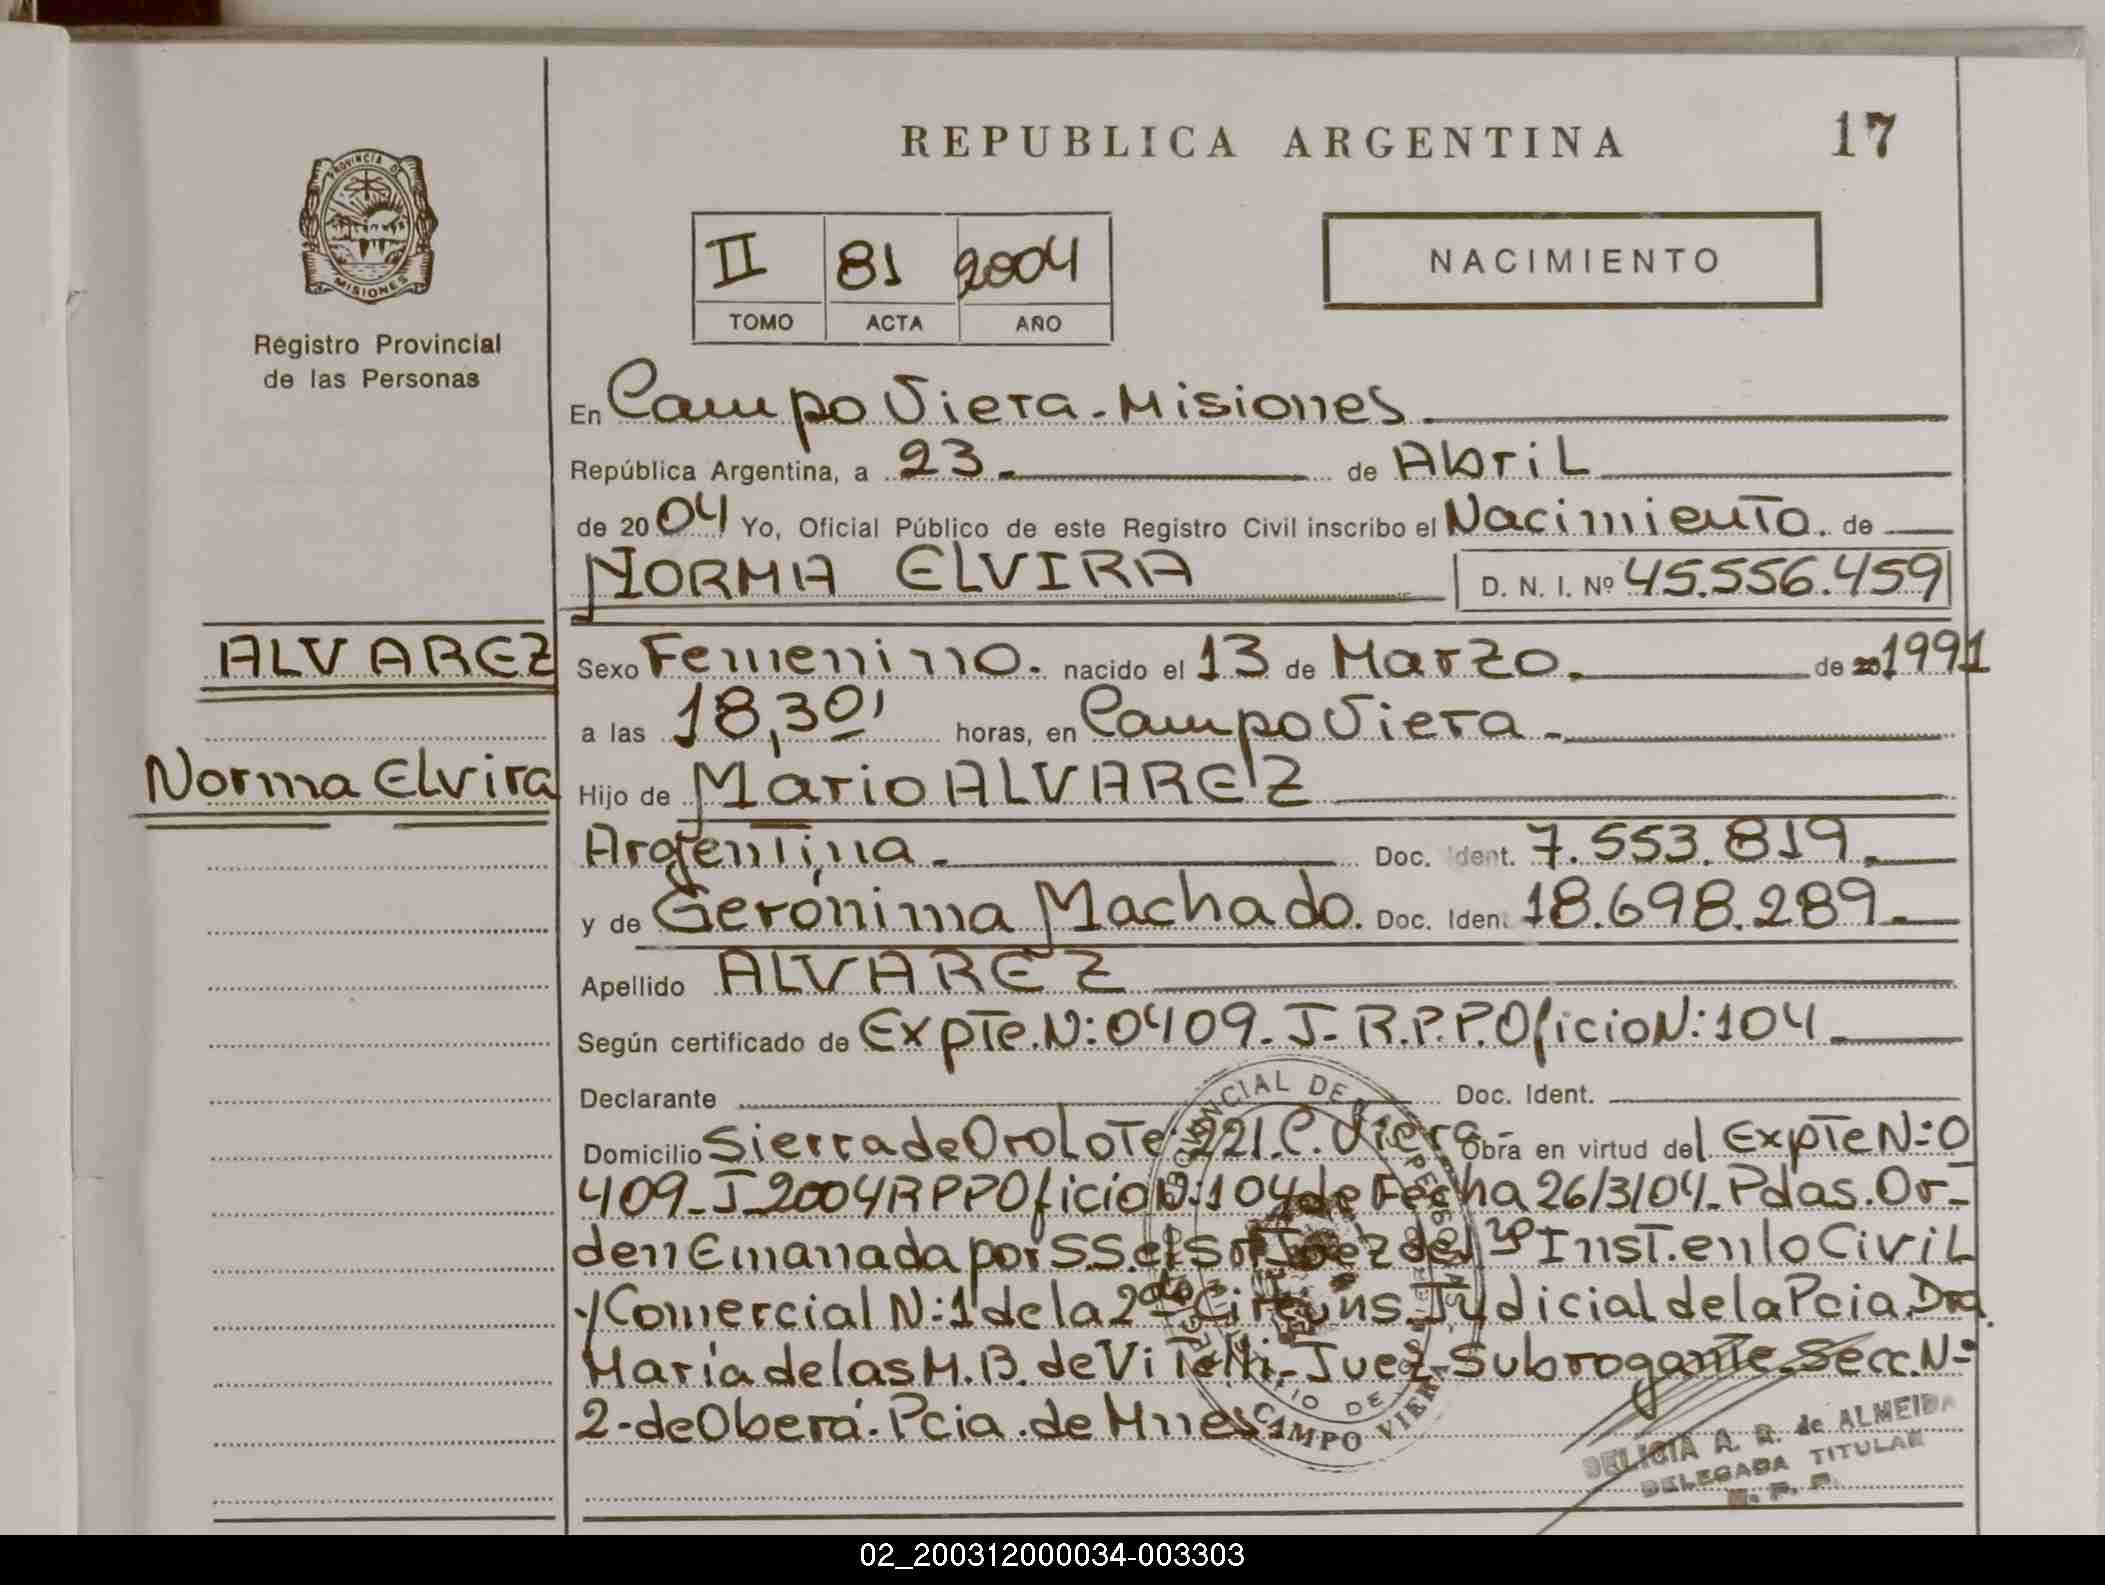 REPUBLICA ARGENTINA
17
PROVINCIA DE
MISIONES
Registro Provincial
de las Personas
II 81 2004
TOMO ACTA AÑO
NACIMIENTO
En Campo Viera - Misiones
República Argentina, a 23 de Abril
de 2004 Yo, Oficial Público de este Registro Civil inscribo el Nacimiento. de
NORMA ELVIRA D. N. I. Nº 45.556.459
ALVAREZ
Norma Elvira
Sexo Femenino. nacido el 13 de Marzo. de 20 1991
a las 18,30' horas, en Campo Viera -
Hijo de Mario ALVAREZ
Argentina - Doc. Ident. 7.553.819.
y de Gerónima Machado. Doc. Iden. 18.698.289.
Apellido ALVAREZ
Según certificado de Expte.N:0409-J-R.P.P.Oficio N:104
Declarante Doc. Ident.
Domicilio Sierra de Oro Lote 221.C.Viera- Obra en virtud del Expte N:0
409-J-2004 RPP Oficio N:104 de Fecha 26/3/04. Pdas.Or-
den Emanada por S.S. el Sr Juez de 1º Inst. en lo Civil
y Comercial N:1 de la 2da Circuns. Judicial de la Pcia. Dra.
María de las M.B. de Vitelli- Juez Subrogante- Secc.N-
2-de Oberá. Pcia. de Mnes
CAMPO VIERA
DELICIA A. R. de ALMEIDA
DELEGADA TITULAR
R. P. P.
02_200312000034-003303